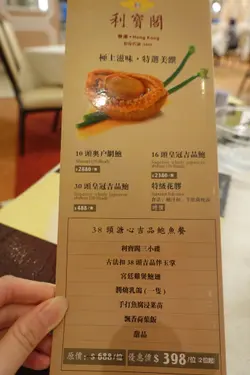 利寶閣
香港 • Hong Kong
極上滋味・特選美饌
10頭奧戶網鮑
16頭皇冠吉品鮑
$2880
30頭皇冠吉品鮑
特級花膠
$488
時價
38頭溏心吉品鮑魚餐
利寶閣三小碟
古法扣38頭吉品伴玉掌
宮廷雞煲鮑翅
醬燒乳鴿(一隻)
手打魚腐浸菜苗
飄香荷葉飯
甜品
原價:$688/位 優惠價 $398/位